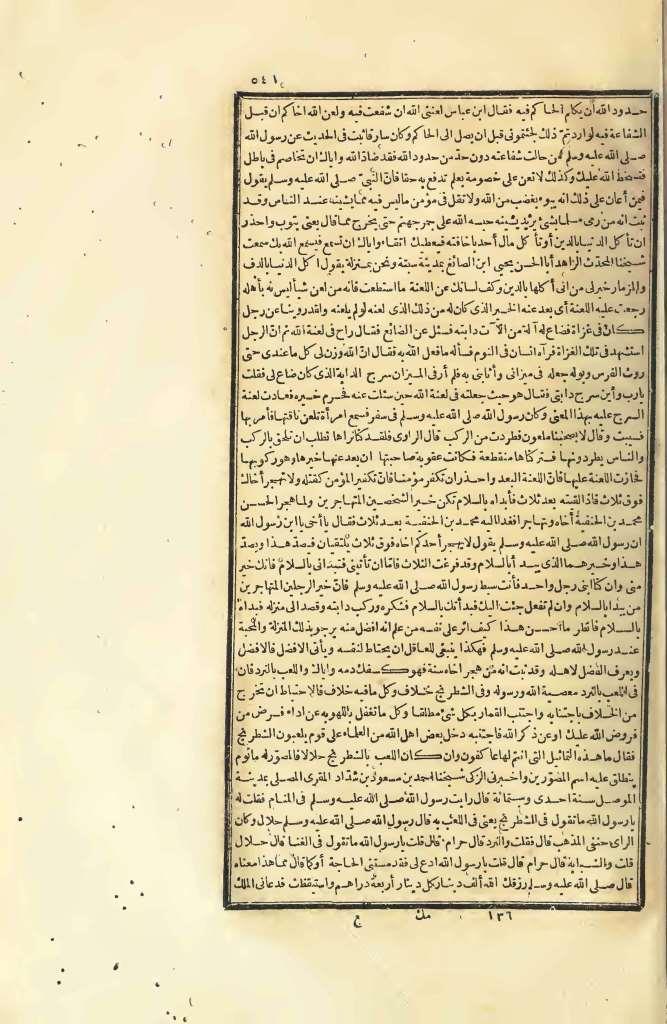 ٥٤١
حدود الله أن يكلم الحاكم فيه فقال ابن عباس لعنتى الله ان شفعت فيه ولعن الله الحاكم ان قبل
الشفاعة فيه لو أردتم ذلك لجئتمونى قبل ان يصل الى الحاكم وكان سارقا ثبت فى الحديث عن رسول الله
صلى الله عليه وسلم من حالت شفاعته دون حد من حدود الله فقد ضاد الله واياك ان تخاصم فى باطل
فتسخط الله عليك وكذلك لا تعن على خصومة بعلم تدفع به حقا فان النبى صلى الله عليه وسلم يقول
فيمن أعان على ذلك انه يبوء بغضب من الله ولا تقل فى مؤمن ما ليس فيه مما يشينه عند الناس وقد
ثبت انه من رمى مسلما بشئ يريد شينه حبسه الله على جسر جهنم حتى يخرج مما قال يعنى يتوب واحذر
ان تأكل الدنيا بالدين أو تأكل مال أحد باخافته فيعطيك اتقاء واياك ان تسمع فيسمع الله بك سمعت
شيخنا المحدث الزاهد أبا الحسن يحيى ابن الصائغ بمدينة سبتة ونحن بمنزله يقول اكل الدنيا بالدف
والمزمار خير لى من انى أكلها بالدين وكف لسانك عن اللعنة ما استطعت فانه من لعن شيأ ليس له بأهله
رجعت عليه اللعنة أى بعد عنه الخير الذى كان له من ذلك الذى لعنه لو لم يلعنه ولقد روينا عن رجل
كان فى غزاة فضاع له آلة من الآت دابته فسئل عن الضائع فقال راح فى لعنة الله ثم ان الرجل
استشهد فى تلك الغزاة فرآه انسان فى النوم فسأله ما فعل الله به فقال ان الله وزن لى كل ما عندى حتى
روث الفرس وبوله جعله فى ميزانى وأثابنى به فلم أر فى الميزان سرج الدابة الذى كان ضاع لى فقلت
يا رب وأين سرج دابتى فقال هو حيث جعلته فى لعنة الله حين سئلت عنه فحرم خيره فعادت لعنة
السرج عليه بهذا المعنى وكان رسول الله صلى الله عليه وسلم فى سفر فسمع امرأة تلعن ناقتها فأمر بها
فسيبت وقال لا يصحبنا ملعون فطردت من الركب قال الراوى فلقد كنا نراها تطلب ان تلحق بالركب
والناس يطردونها فتركناها منقطعة فكانت عقوبة صاحبتها ان بعد عنها خيرها وهو ركوبها
فحارت اللعنة عليها فان اللعنة البعد واحذر ان تكفر مؤمنا فان تكفير المؤمن كقتله ولا تهجر أخاك
فوق ثلاث فاذا لقيته بعد ثلاث فأبدأه بالسلام تكن خير الشخصين المتهاجرين ولما هجر الحسن
محمد بن الحنفية أخاه وتهاجرا فغدا اليه محمد بن الحنفية بعد ثلاث فقال يا أخى يا ابن رسول الله
ان رسول الله صلى الله عليه وسلم يقول لا يهجر أحدكم اخاه فوق ثلاث يلتقيان فيصد هذا ويصد
هذا وخيرهما الذى يبدأ بالسلام وقد فرغت الثلاث فاما ان تأتينى فتبدانى بالسلام فانك خير
منى وان كنا ابنى رجل واحد فأنت سبط رسول الله صلى الله عليه وسلم فان خير الرجلين المتهاجرين
من يبدأ بالسلام وان لم تفعل جئت اليك فبدأتك بالسلام فشكره وركب دابته وقصد الى منزله فبدأه
بالسلام فانظر ما أحسن هذا كيف آثر على نفسه من علم انه افضل منه يرجو بذلك المنزلة والمحبة
عند رسول الله صلى الله عليه وسلم فهكذا ينبغى للعاقل ان يحتاط لنفسه ويأتى الافضل فالافضل
ويعرف الفضل لاهله وقد ثبت انه من هجر اخاه سنة فهو كسفك دمه واياك واللعب بالنرد فان
فى اللعب بالنرد معصية الله ورسوله وفى الشطرنج خلاف وكل ما فيه خلاف فالاحتياط ان تخرج
من الخلاف باجتنابه واجتنب القمار بكل شئ مطلقا وكل ما تغفل باللهو به عن اداء فرض من
فروض الله عليك او عن ذكر الله فاجتنبه دخل بعض اهل الله من العلماء على قوم يلعبون الشطرنج
فقال ما هذه التماثيل التى انتم لها عاكفون وان كان اللعب بالشطرنج حلالا فالمصور له مأثوم
ينطلق عليه اسم المصورين واخبرنى الزكى شيخنا احمد بن مسعود بن شداد المقرى الموصلى بمدينة
الموصل سنة احدى وستمائة قال رايت رسول الله صلى الله عليه وسلم فى المنام فقلت له
يا رسول الله ما تقول فى الشطرنج يعنى فى اللعب به قال رسول الله صلى الله عليه وسلم حلال وكان
الراى حنفى المذهب قال فقلت والنرد قال حرام قال قلت يا رسول الله ما تقول فى الغنا قال حلال
قلت والشبابة قال حرام قال قلت يا رسول الله ادع لى فقد مستنى الحاجة أو كما قال مما هذا معناه
قال صلى الله عليه وسلم رزقك الله ألف دينار كل دينار أربعة دراهم واستيقظت فدعانى الملك
١٣٦ مك ع